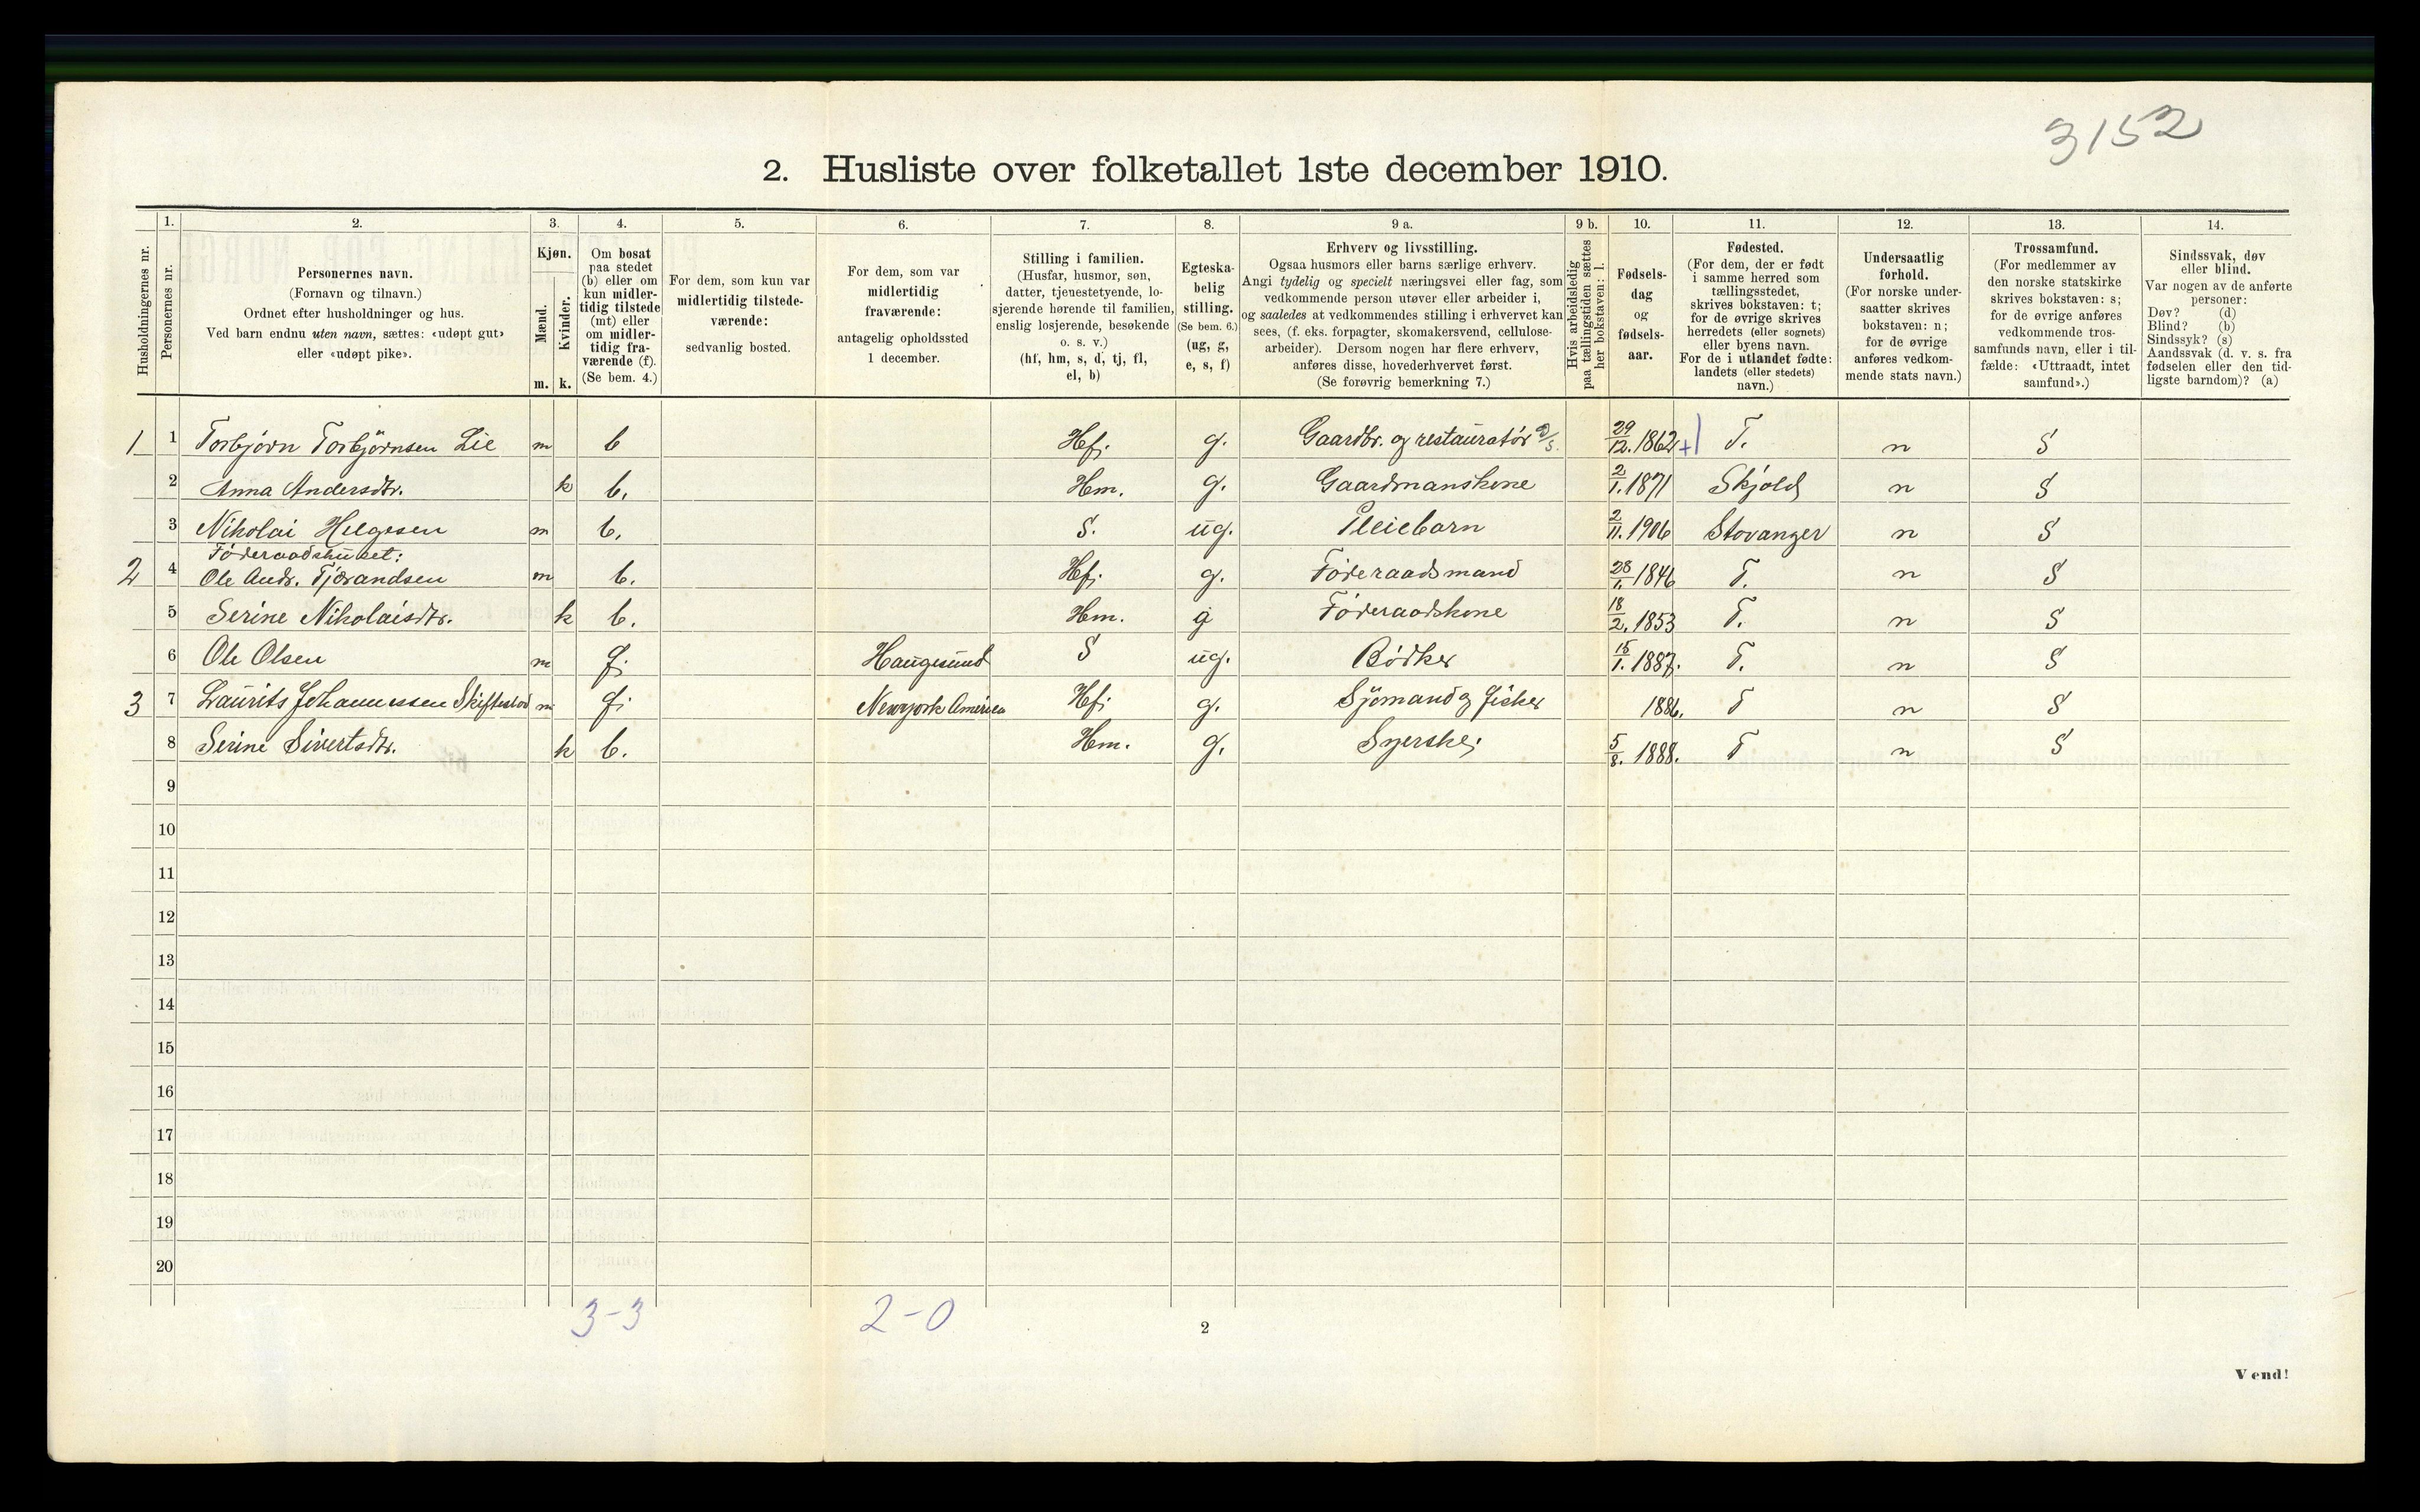 3152
2. Husliste over folketallet 1ste december 1910.
Husholdningernes nr.
1.
Personernes nr.
2.
Personernes navn.
(Fornavn og tilnavn.)
Ordnet efter husholdninger og hus.
Ved barn endnu uten navn, sættes: «udøpt gut»
eller «udøpt pike».
3.
Kjøn.
Mænd.
Kvinder.
m. k.
4.
Om bosat
paa stedet
(b) eller om
kun midler-
tidig tilstede
(mt) eller
om midler-
tidig fra-
værende (f).
(Se bem. 4.)
5.
For dem, som kun var
midlertidig tilstede-
værende:
sedvanlig bosted.
6.
For dem, som var
midlertidig
fraværende:
antagelig opholdssted
1 december.
7.
Stilling i familien.
(Husfar, husmor, søn,
datter, tjenestetyende, lo-
sjerende hørende til familien,
enslig losjerende, besøkende
o. s. v.)
(hf, hm, s, d, tj, fl,
el, b)
8.
Egteska-
belig
stilling.
(Se bem. 6.)
(ug, g,
e, s, f)
9 a.
Erhverv og livsstilling.
Ogsaa husmors eller barns særlige erhverv.
Angi tydelig og specielt næringsvei eller fag, som
vedkommende person utøver eller arbeider i,
og saaledes at vedkommendes stilling i erhvervet kan
sees, (f. eks. forpagter, skomakersvend, cellulose-
arbeider). Dersom nogen har flere erhverv,
anføres disse, hovederhvervet først.
(Se forøvrig bemerkning 7.)
9 b.
Hvis arbeidsledig
paa tællingstiden sættes
her bokstaven: l.
10.
Fødsels-
dag
og
fødsels-
aar.
11.
Fødested.
(For dem, der er født
i samme herred som
tællingsstedet,
skrives bokstaven: t;
for de øvrige skrives
herredets (eller sognets)
eller byens navn.
For de i utlandet fødte:
landets (eller stedets)
navn.)
12.
Undersaatlig
forhold.
(For norske under-
saatter skrives
bokstaven: n;
for de øvrige
anføres vedkom-
mende stats navn.)
13.
Trossamfund.
(For medlemmer av
den norske statskirke
skrives bokstaven: s;
for de øvrige anføres
vedkommende tros-
samfunds navn, eller i til-
fælde: «Uttraadt, intet
samfund».)
14.
Sindssvak, døv
eller blind.
Var nogen av de anførte
personer:
Døv? (d)
Blind? (b)
Sindssyk? (s)
Aandssvak (d. v. s. fra
fødselen eller den tid-
ligste barndom)? (a)
1 1 Torbjørn Torbjørnsen Lie m b Hf. g. Gaardbr. og restauratør 29/12. 1862 + T. n S
2 Anna Andersdtr. k b. Hm. g. Gaardmanskone 2/1. 1871 Skjold n S
3 Nikolai Helgesen m b. S. ug. Pleiebarn 2/11. 1906 Stavanger n S
Føderaadshuset:
2 4 Ole Andr. Tjørandsen m b. Hf. g. Føderaadsmand 28/1. 1846 T. n S
5 Serine Nikolaisdtr. k b. Hm. g Føderaadskone 18/2. 1853 T. n S
6 Ole Olsen m f. Haugesund S ug. Bødker 15/1. 1887. T. n S
3 7 Laurits Johannessen Skiftestad m f. Newyork America Hf. g. Sjømand og fisker 1886. T n S
8 Serine Sivertsdtr. k b. Hm. g. Syerske; 5/8. 1888. T n S
9
10
11
12
13
14
15
16
17
18
19
20
3-3 2-0
2
Vend!